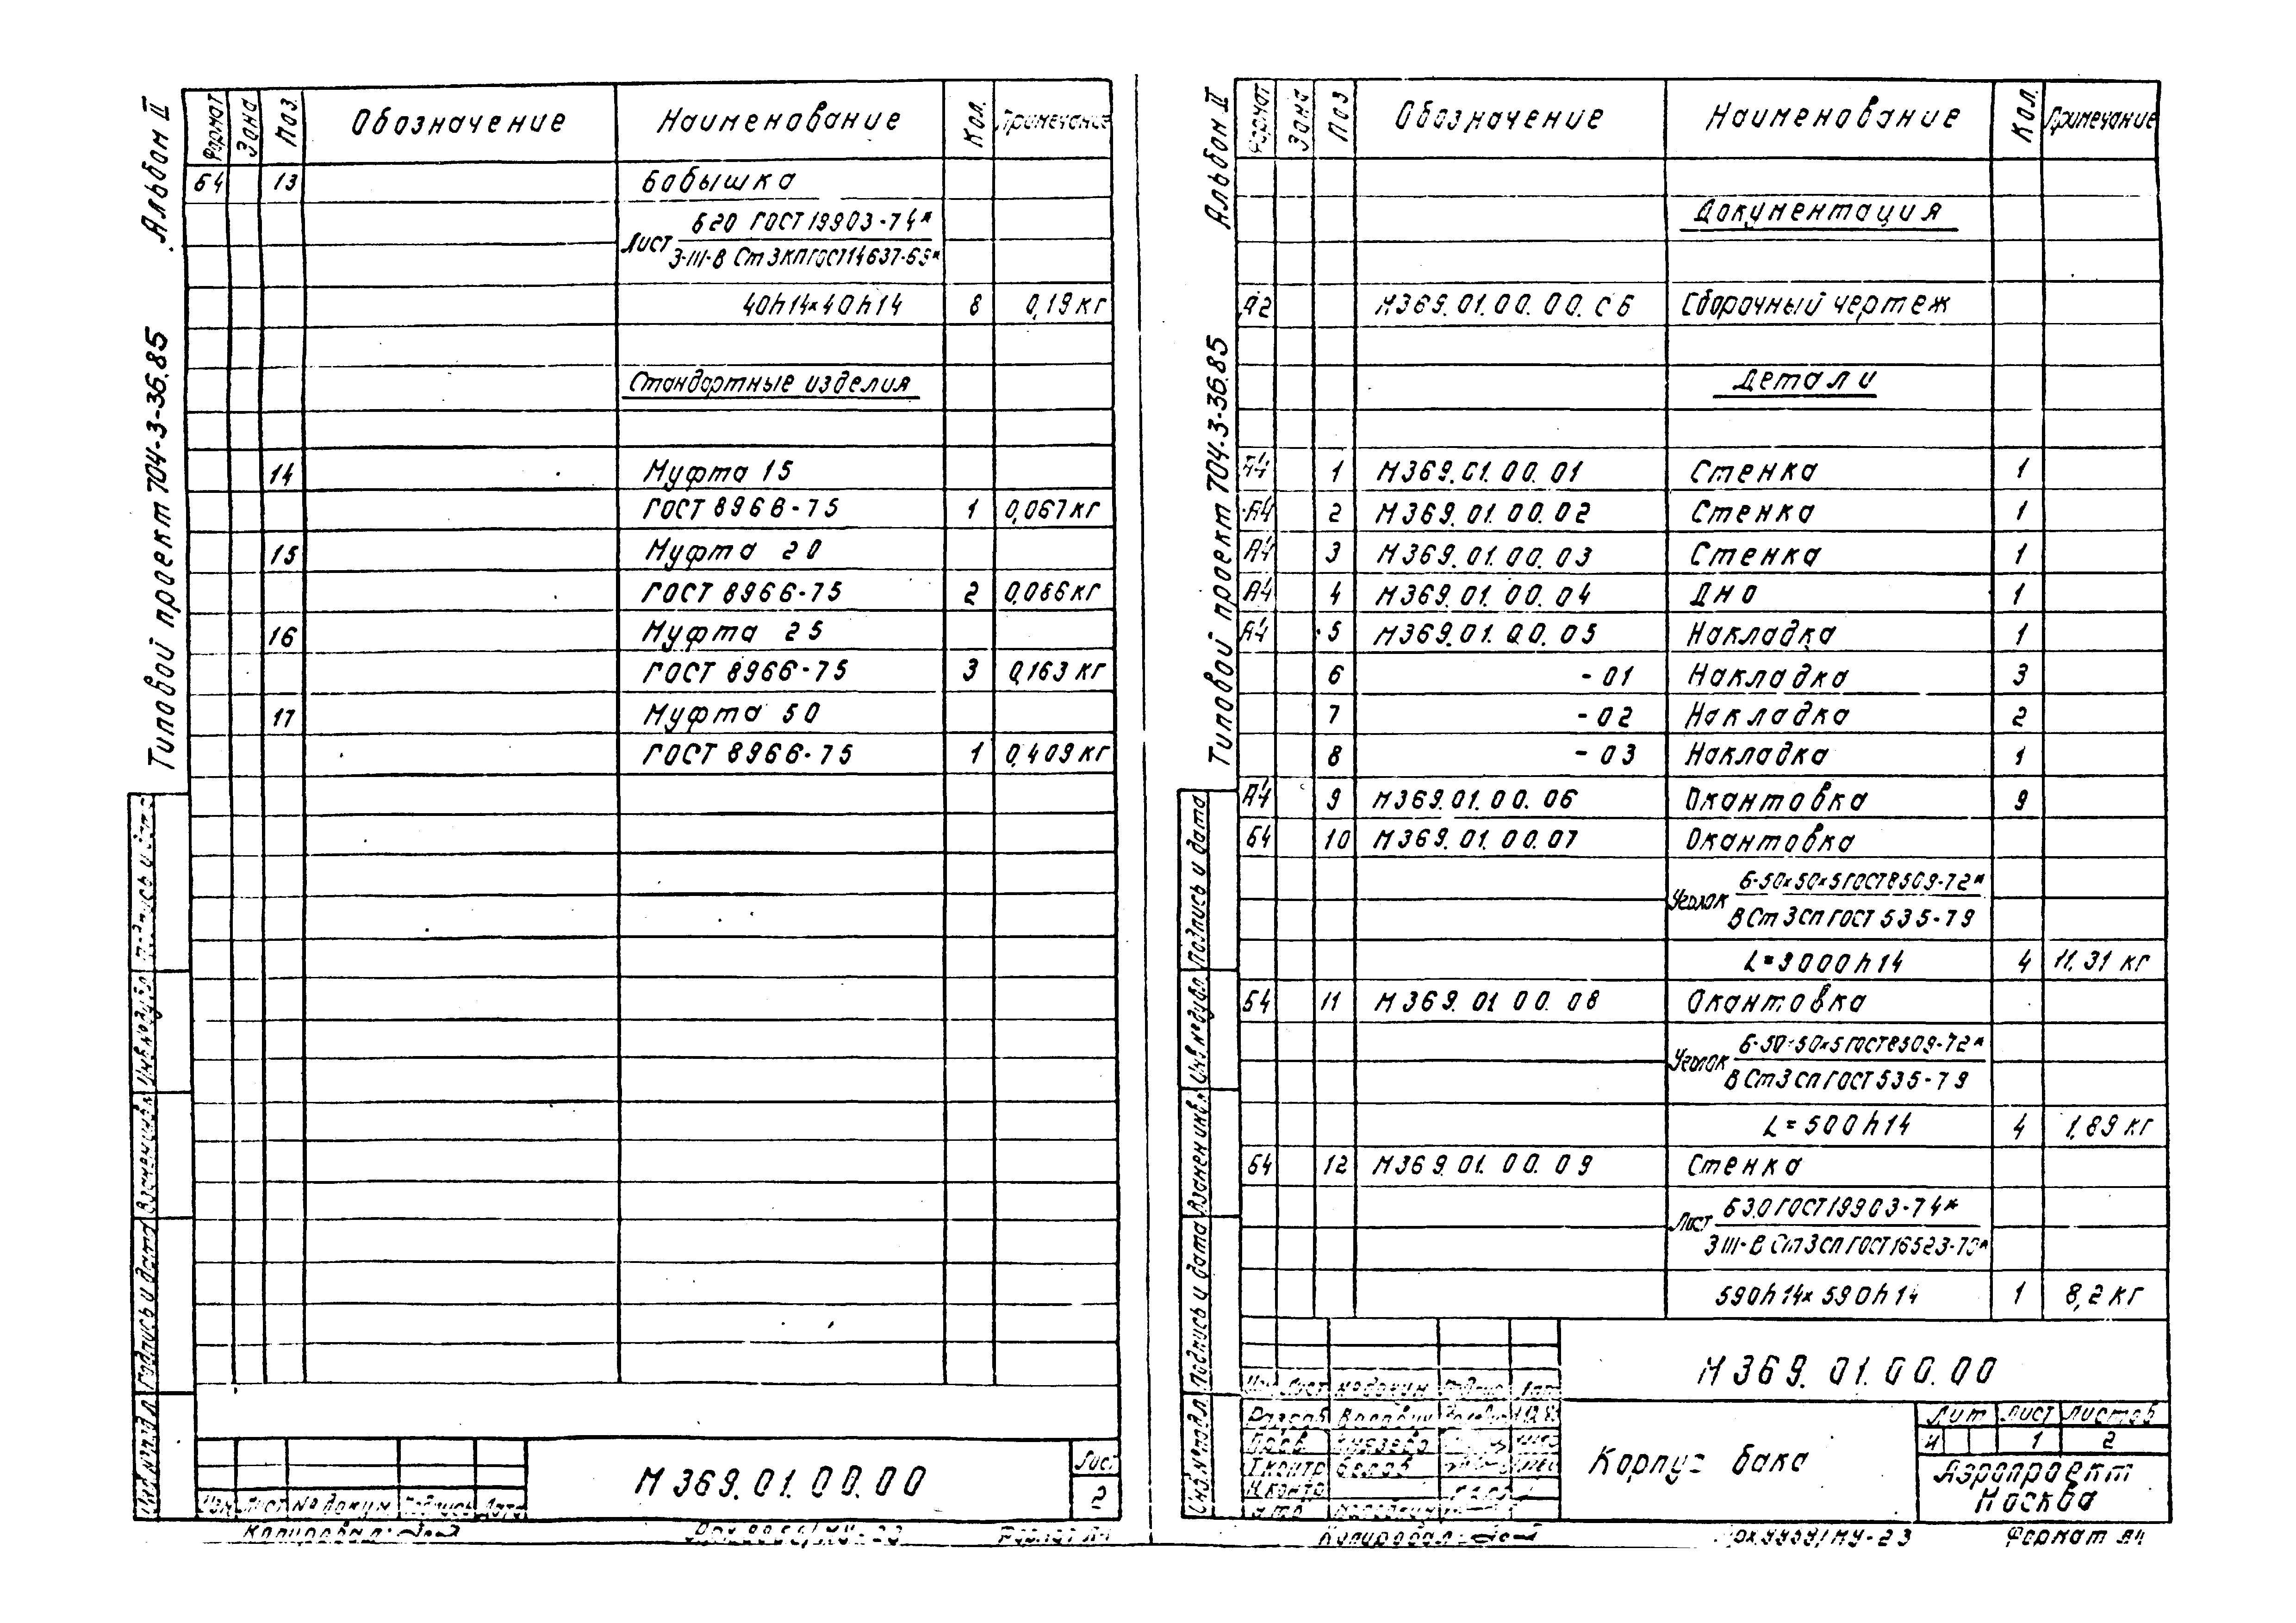 Альбом II
Типовой проект 704-3-36.85
Формат Зона Поз. Обозначение Наименование Кол. Примечание
Б4 13 Бобышка
Лист Б20 ГОСТ 19903-74*
3-III-В Ст3КП ГОСТ 14637-69*
40h14×40h14 8 0,19 кг
Стандартные изделия
14 Муфта 15
ГОСТ 8966-75 1 0,067 кг
15 Муфта 20
ГОСТ 8966-75 2 0,086 кг
16 Муфта 25
ГОСТ 8966-75 3 0,163 кг
17 Муфта 50
ГОСТ 8966-75 1 0,409 кг
Подпись и дата
Инв № подл.
Изм Лист № докум. Подпись Дата
М 369.01.00.00
Лист
2
Копировал:
Формат А4
Альбом II
Типовой проект 704-3-36.85
Формат Зона Поз Обозначение Наименование Кол. Примечание
Документация
А2 М369.01.00.00.СБ Сборочный чертеж
Детали
А4 1 М369.01.00.01 Стенка 1
А4 2 М369.01.00.02 Стенка 1
А4 3 М369.01.00.03 Стенка 1
А4 4 М369.01.00.04 Дно 1
А4 5 М369.01.00.05 Накладка 1
6 -01 Накладка 3
7 -02 Накладка 2
8 -03 Накладка 1
А4 9 М369.01.00.06 Окантовка 9
Б4 10 М369.01.00.07 Окантовка
Уголок Б-50×50×5 ГОСТ 8509-72*
ВСт3сп ГОСТ 535-79
L=3000h14 4 11,31 кг
Б4 11 М369.01.00.08 Окантовка
Уголок Б-50×50×5 ГОСТ 8509-72*
ВСт3сп ГОСТ 535-79
L=500h14 4 1,89 кг
Б4 12 М369.01.00.09 Стенка
Лист Б3.0 ГОСТ 19903-74*
3 III-В Ст3сп ГОСТ 16523-70*
590h14×590h14 1 8,2 кг
Подпись и дата
Инв № дубл.
Взамен инв.№
Подпись и дата
Инв.№ подл.
М 369.01.00.00
Изм Лист № докум
Разраб
Пров. Князева
Т.контр Белов
Н.контр
Утв
Корпус бака
Лит Лист Листов
И 1 2
Аэропроект
Москва
Копировал:
Формат А4